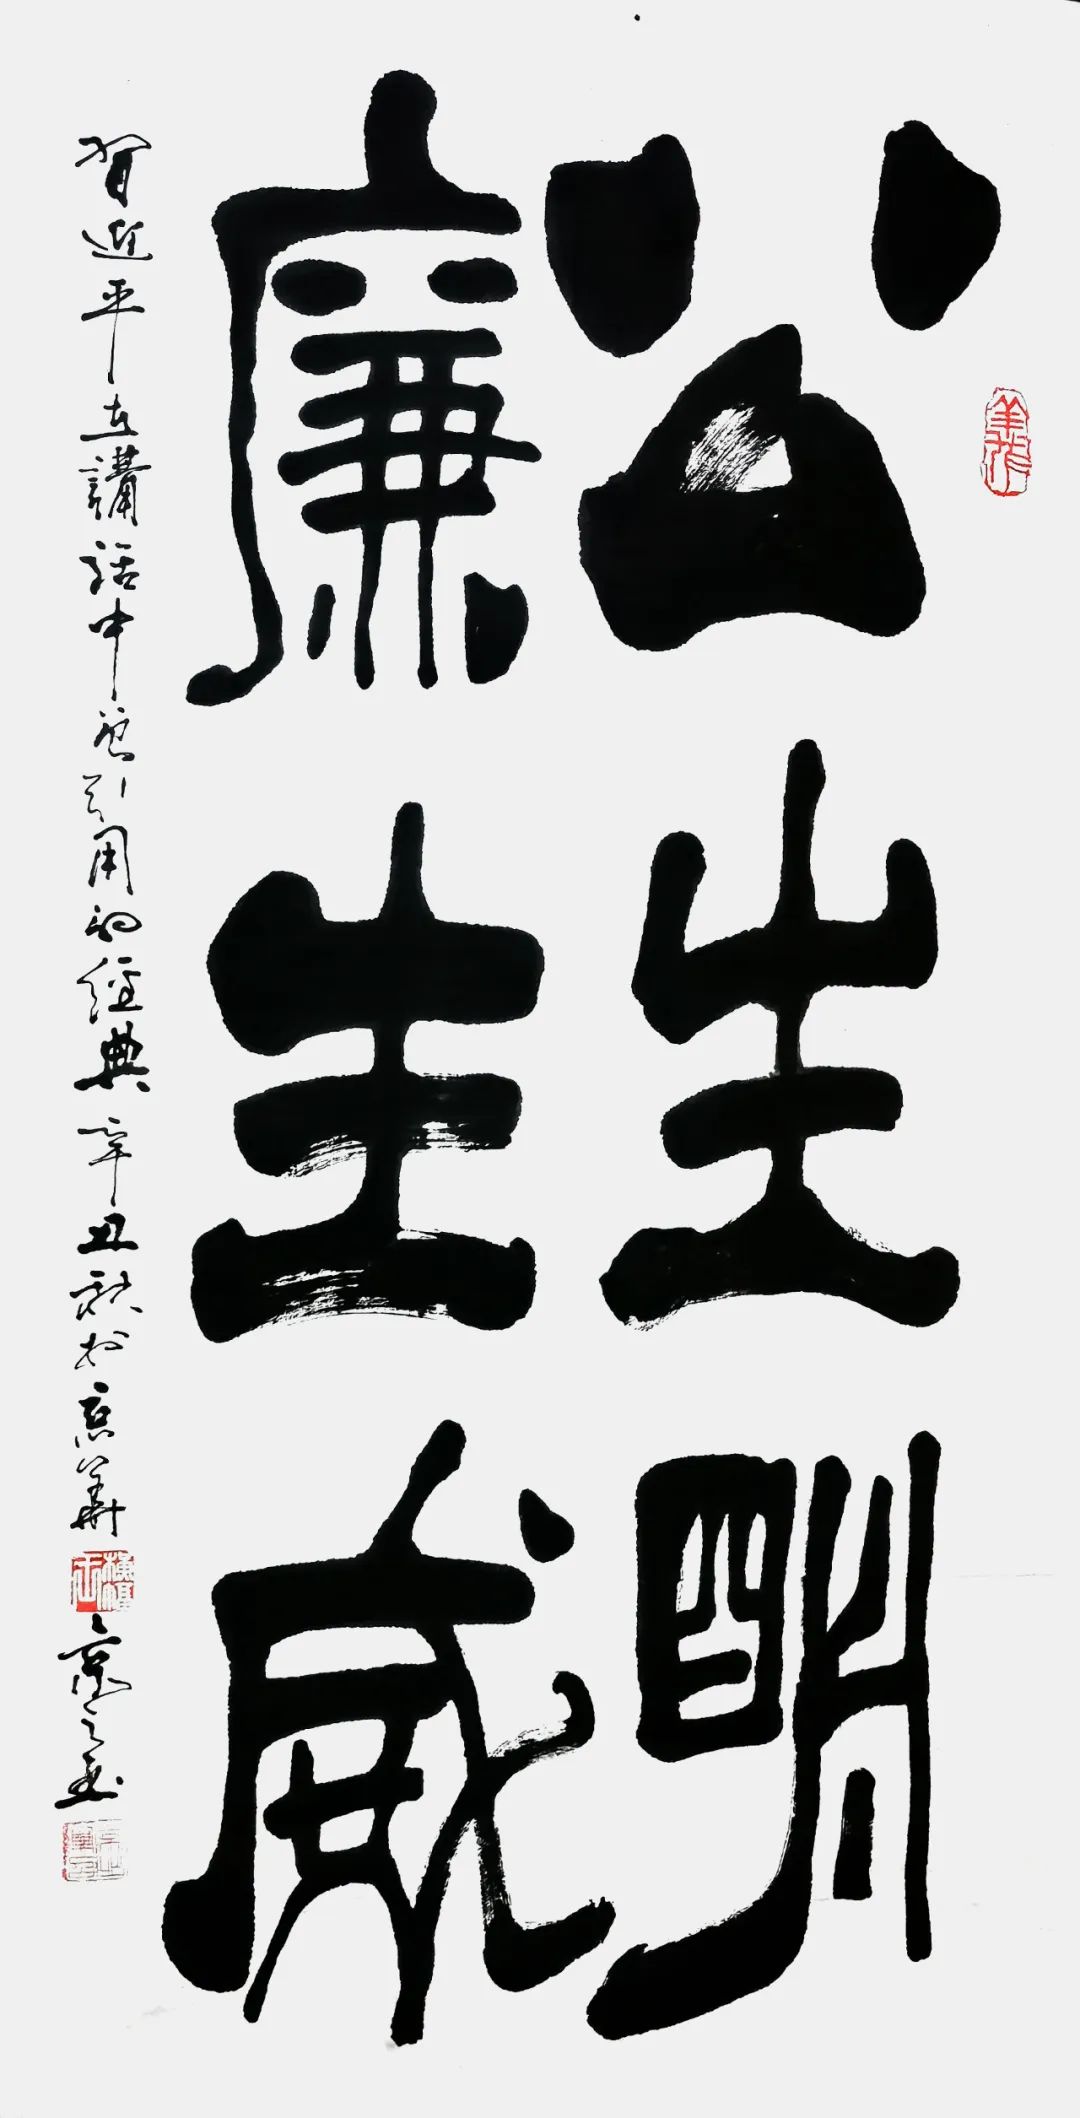 公生明
廉生威
習近平在講話中引用的經典辛丑秋於京華